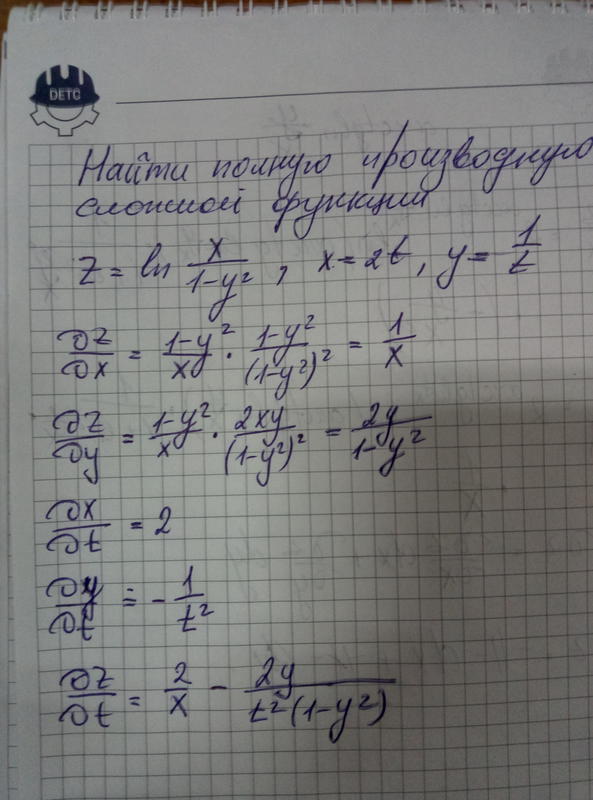 DETC
Найти полную производную
сложной функции
z = ln x/(1-y²), x = 2t, y = 1/t
∂z/∂x = (1-y²)/x · (1-y²)/(1-y²)² = 1/x
∂z/∂y = (1-y²)/x · 2xy/(1-y²)² = 2y/(1-y²)
∂x/∂t = 2
∂y/∂t = -1/t²
∂z/∂t = 2/x - 2y/(t²(1-y²))